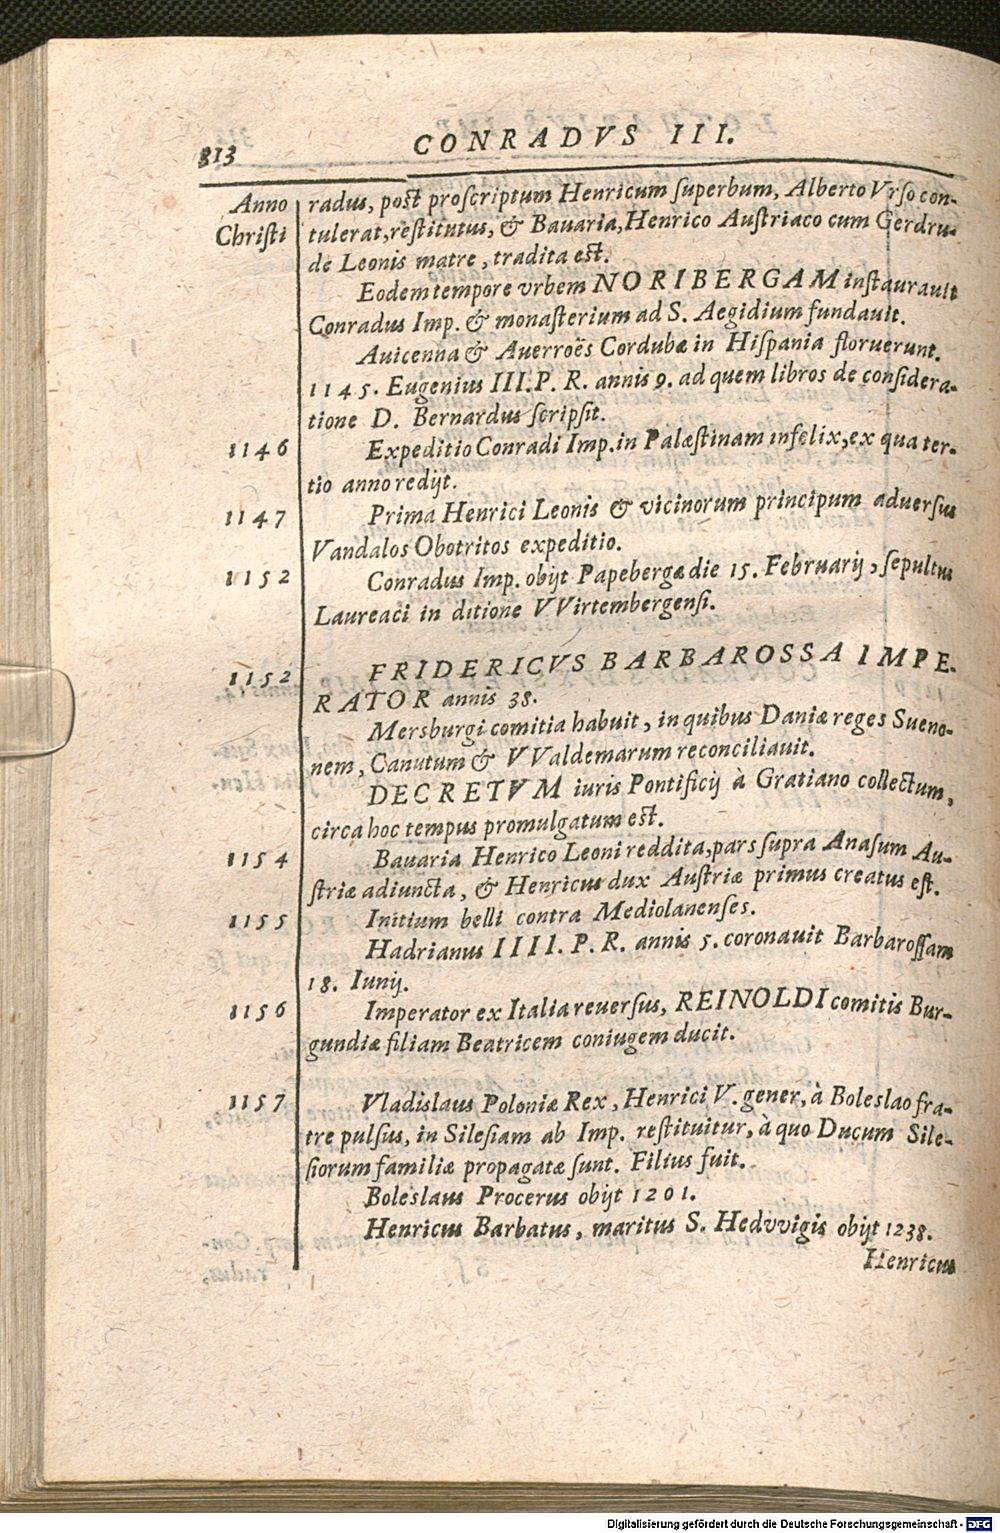 313 CONRADVS III.
Anno radus, post proscriptum Henricum superbum, Alberto Vrso con-
Christi tulerat, restitutus, & Bauaria, Henrico Austriaco cum Gerdru-
de Leonis matre, tradita est.
Eodem tempore vrbem NORIBERGAM instaurauit
Conradus Imp. & monasterium ad S. Aegidium fundauit.
Auicenna & Auerroës Cordubæ in Hispania floruerunt.
1145. Eugenius III. P. R. annis 9. ad quem libros de considera-
tione D. Bernardus scripsit.
1146 Expeditio Conradi Imp. in Palæstinam infelix, ex qua ter-
tio anno redijt.
1147 Prima Henrici Leonis & vicinorum principum aduersus
Vandalos Obotritos expeditio.
1152 Conradus Imp. obijt Papebergæ die 15. Februarij, sepultus
Laureaci in ditione VVirtembergensi.
1152 FRIDERICVS BARBAROSSA IMPE-
RATOR annis 38.
Mersburgi comitia habuit, in quibus Daniæ reges Sueno-
nem, Canutum & VValdemarum reconciliauit.
DECRETVM iuris Pontificij à Gratiano collectum,
circa hoc tempus promulgatum est.
1154 Bauaria Henrico Leoni reddita, pars supra Anasum Au-
striæ adiuncta, & Henricus dux Austriæ primus creatus est.
1155 Initium belli contra Mediolanenses.
Hadrianus IIII. P. R. annis 5. coronauit Barbarossam
18. Iunij.
1156 Imperator ex Italia reuersus, REINOLDI comitis Bur-
gundiæ filiam Beatricem coniugem ducit.
1157 Vladislaus Poloniæ Rex, Henrici V. gener, à Boleslao fra-
tre pulsus, in Silesiam ab Imp. restituitur, à quo Ducum Sile-
siorum familiæ propagatæ sunt. Filius fuit.
Boleslaus Procerus obijt 1201.
Henricus Barbatus, maritus S. Hedvvigis obijt 1238.
Henricus
Digitalisierung gefördert durch die Deutsche Forschungsgemeinschaft - DFG